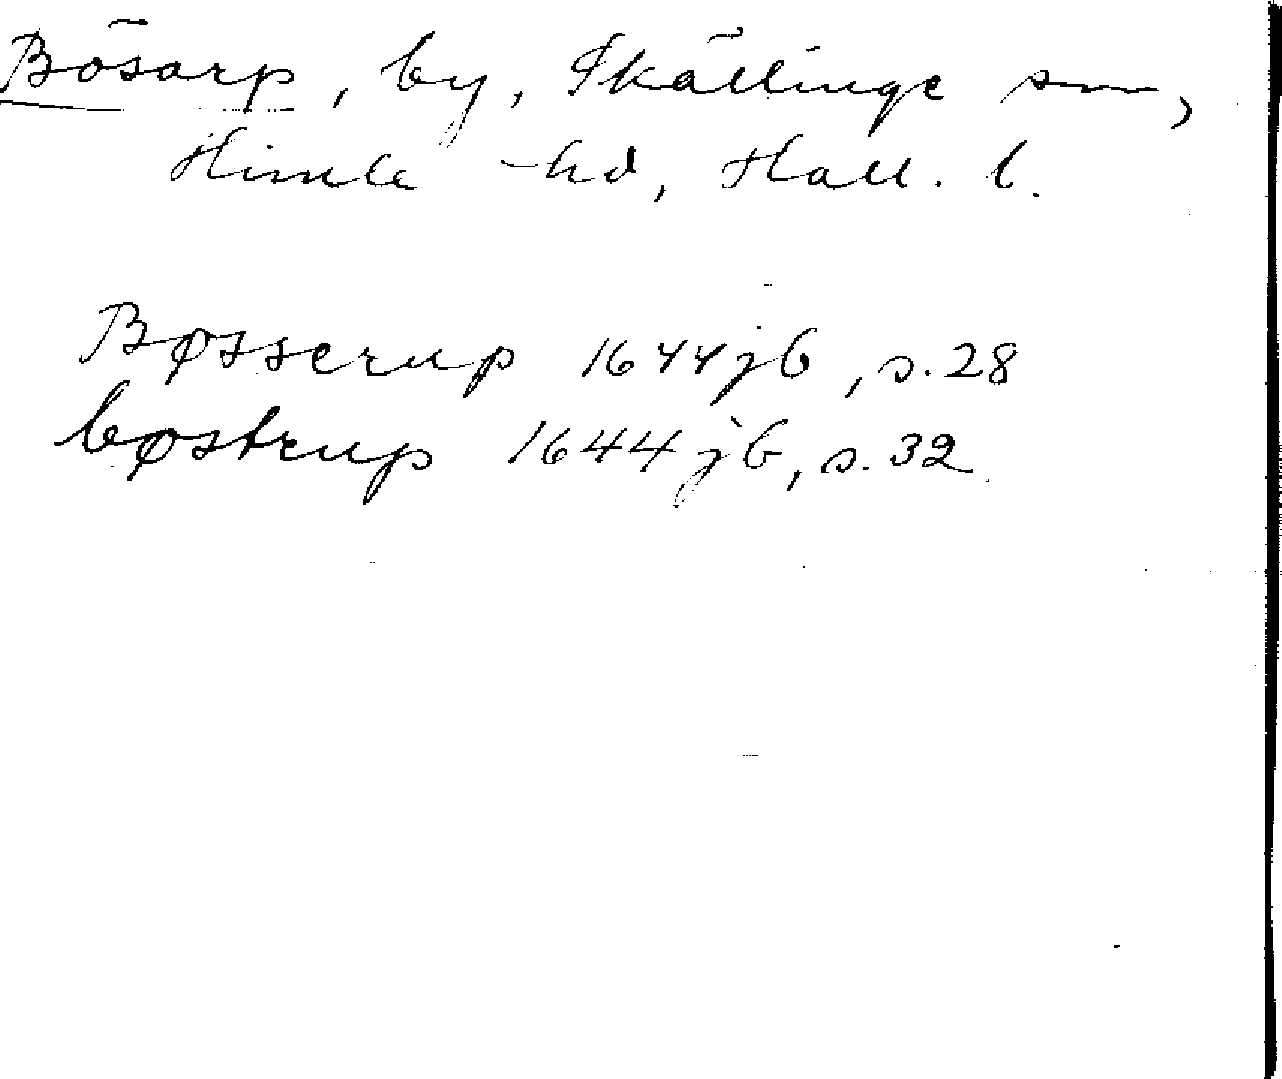 Bösarp, by, Skällinge sn,
Himle hd, Hall. l.
Bøsserup 1644 jb, s. 28
bøstrup 1644 jb, s. 32